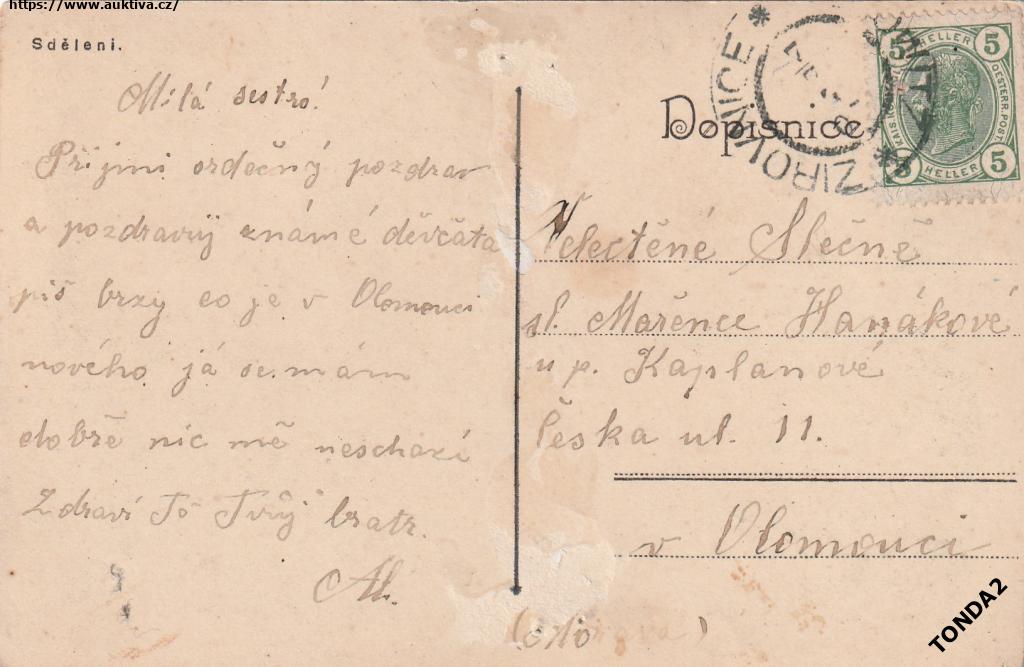 https://www.auktiva.cz/
Sdělení.
Milá sestró!
Přijmi srdečný pozdrav
a pozdravuj známé děvčata
piš brzy co je v Olomouci
nového já se mám
dobře nic mě neschazí
Zdraví Tě Tvůj bratr.
Al.
Dopisnice.
ŽIROVNICE
5 HELLER 5
OESTERR. POST
5 HELLER 5
Velectěné Slečně
sl. Mařence Hanákové
u p. Kaplanové
Česka ul. 11.
v Olomouci
TONDA2